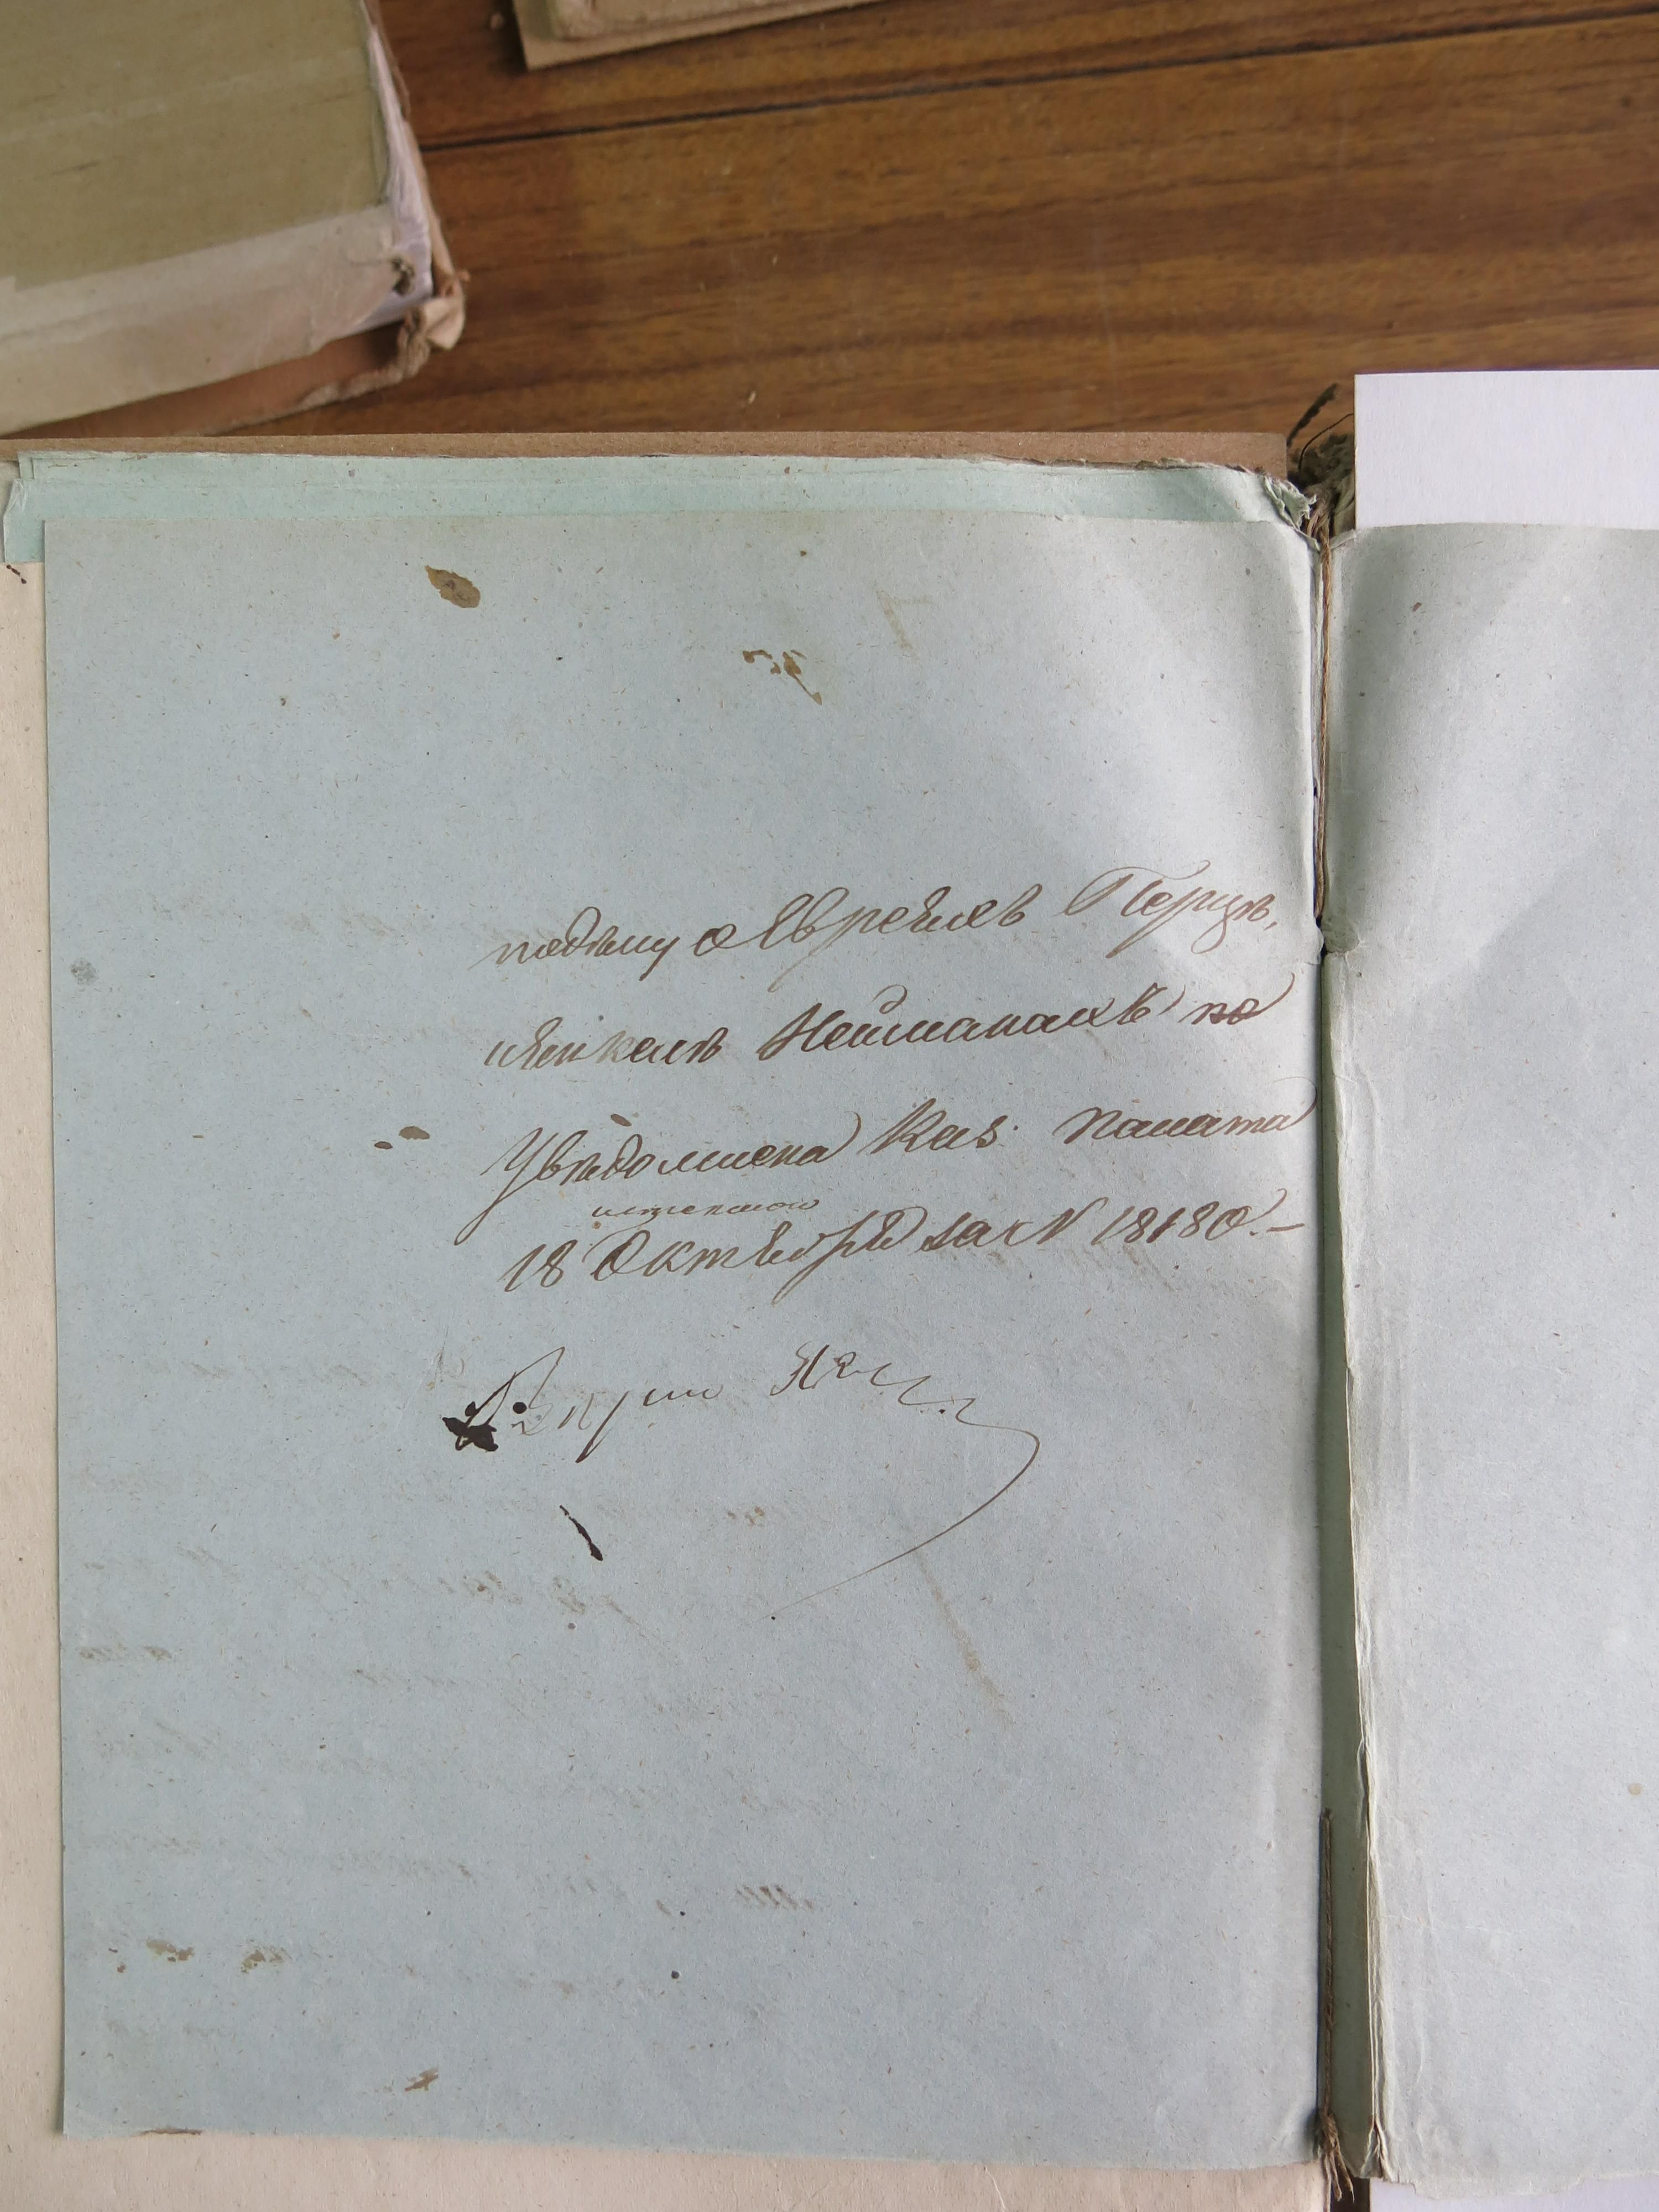 по дѣлу о Евреяхъ Перцѣ,
и Янкелѣ Нейманахъ по
Увѣдомлена Каз. Палата
истекшаго
18 Октября за N 18180.—